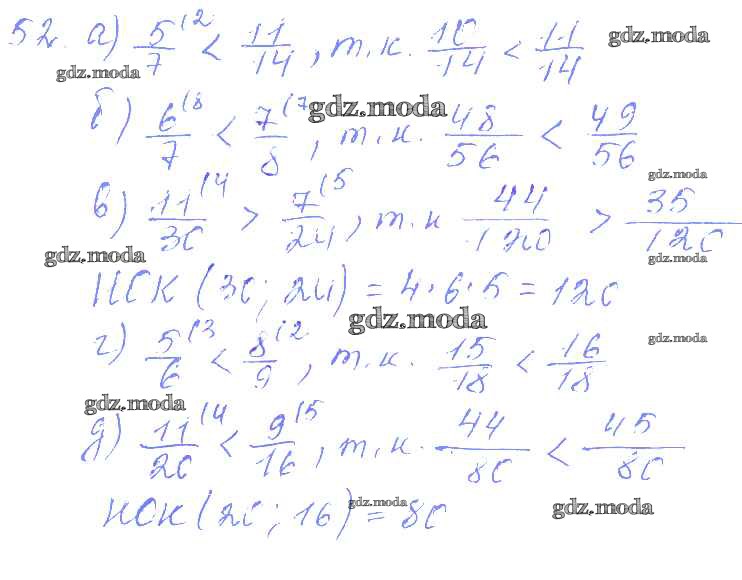 52. а) 5/7 (2 < 11/14, т.к. 10/14 < 11/14 gdz.moda
gdz.moda
б) 6/7 (8 < 7/8 (7, т.к. 48/56 < 49/56 gdz.moda
gdz.moda
в) 11/30 (4 > 7/24 (5, т.к 44/120 > 35/120
gdz.moda gdz.moda
НОК (30; 24) = 4·6·5 = 120
gdz.moda
г) 5/6 (3 < 8/9 (2, т.к. 15/18 < 16/18 gdz.moda
gdz.moda
д) 11/20 (4 < 9/16 (5, т.к. 44/80 < 45/80
НОК (20; 16) = 80 gdz.moda gdz.moda